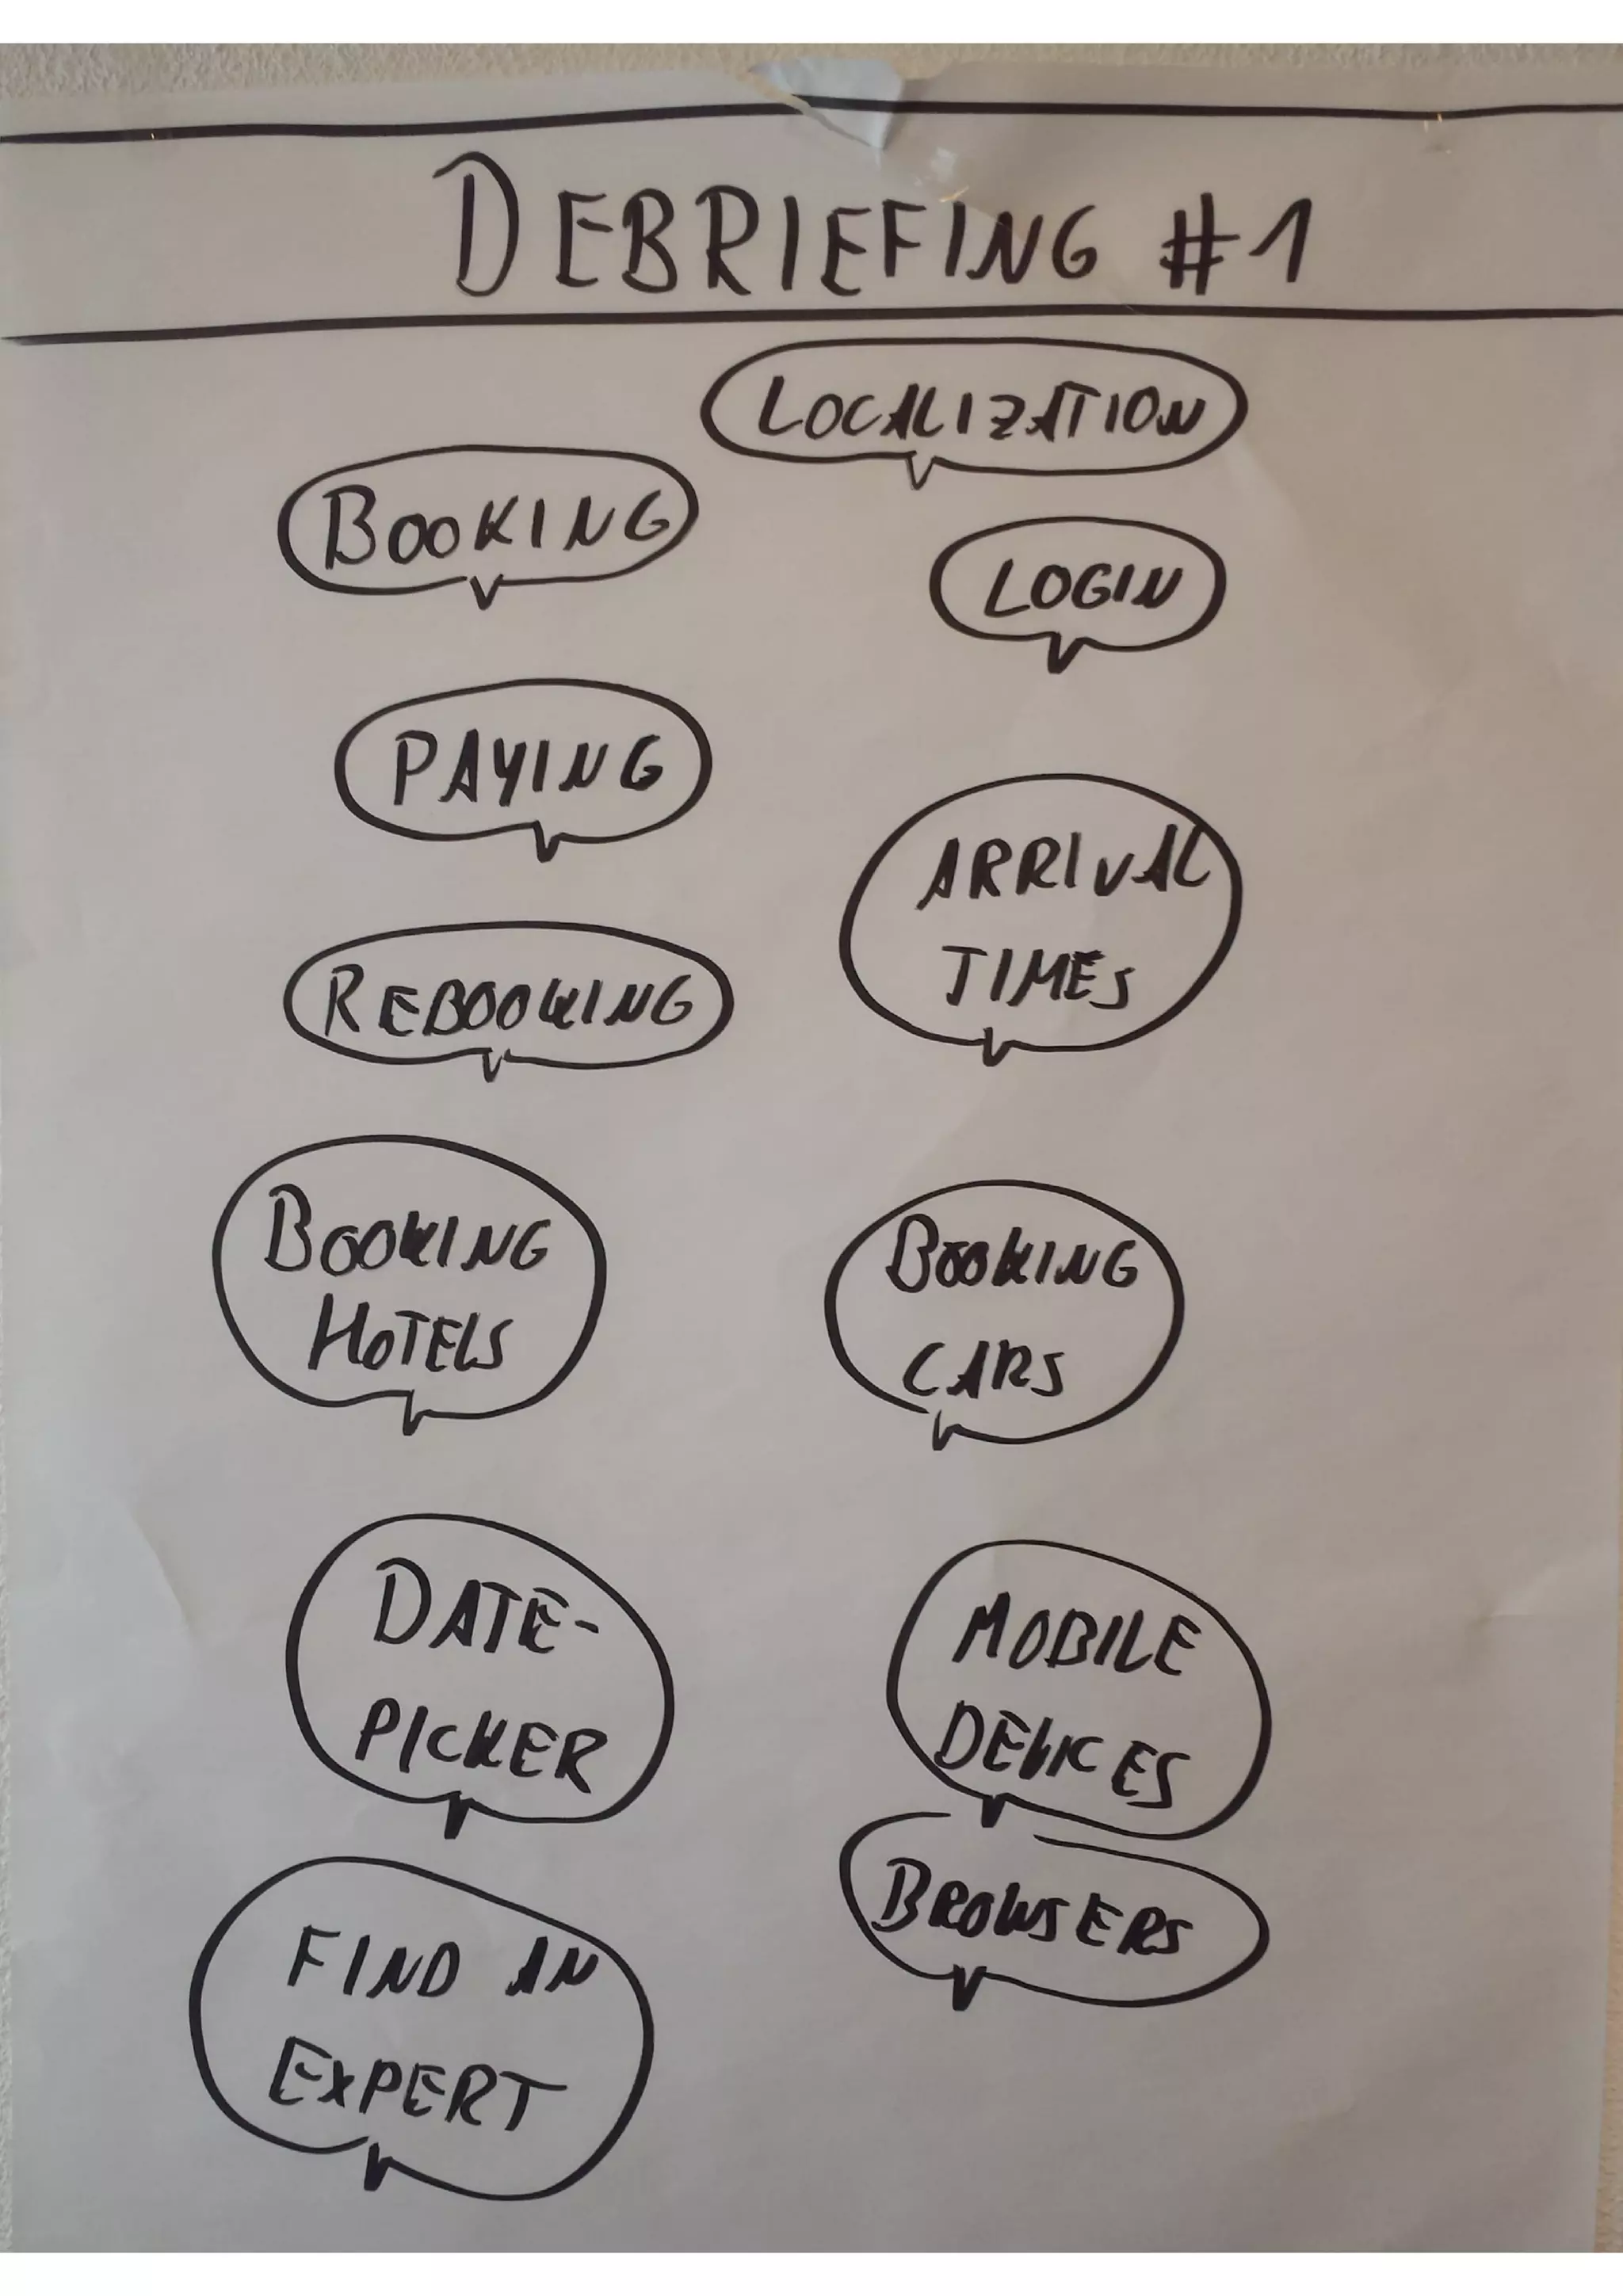 DEBRIEFING #1
LOCALIZATION
BOOKING
LOGIN
PAYING
ARRIVAL
TIMES
REBOOKING
BOOKING
HOTELS
BOOKING
CARS
DATE-
PICKER
MOBILE
DEVICES
BROWSERS
FIND AN
EXPERT